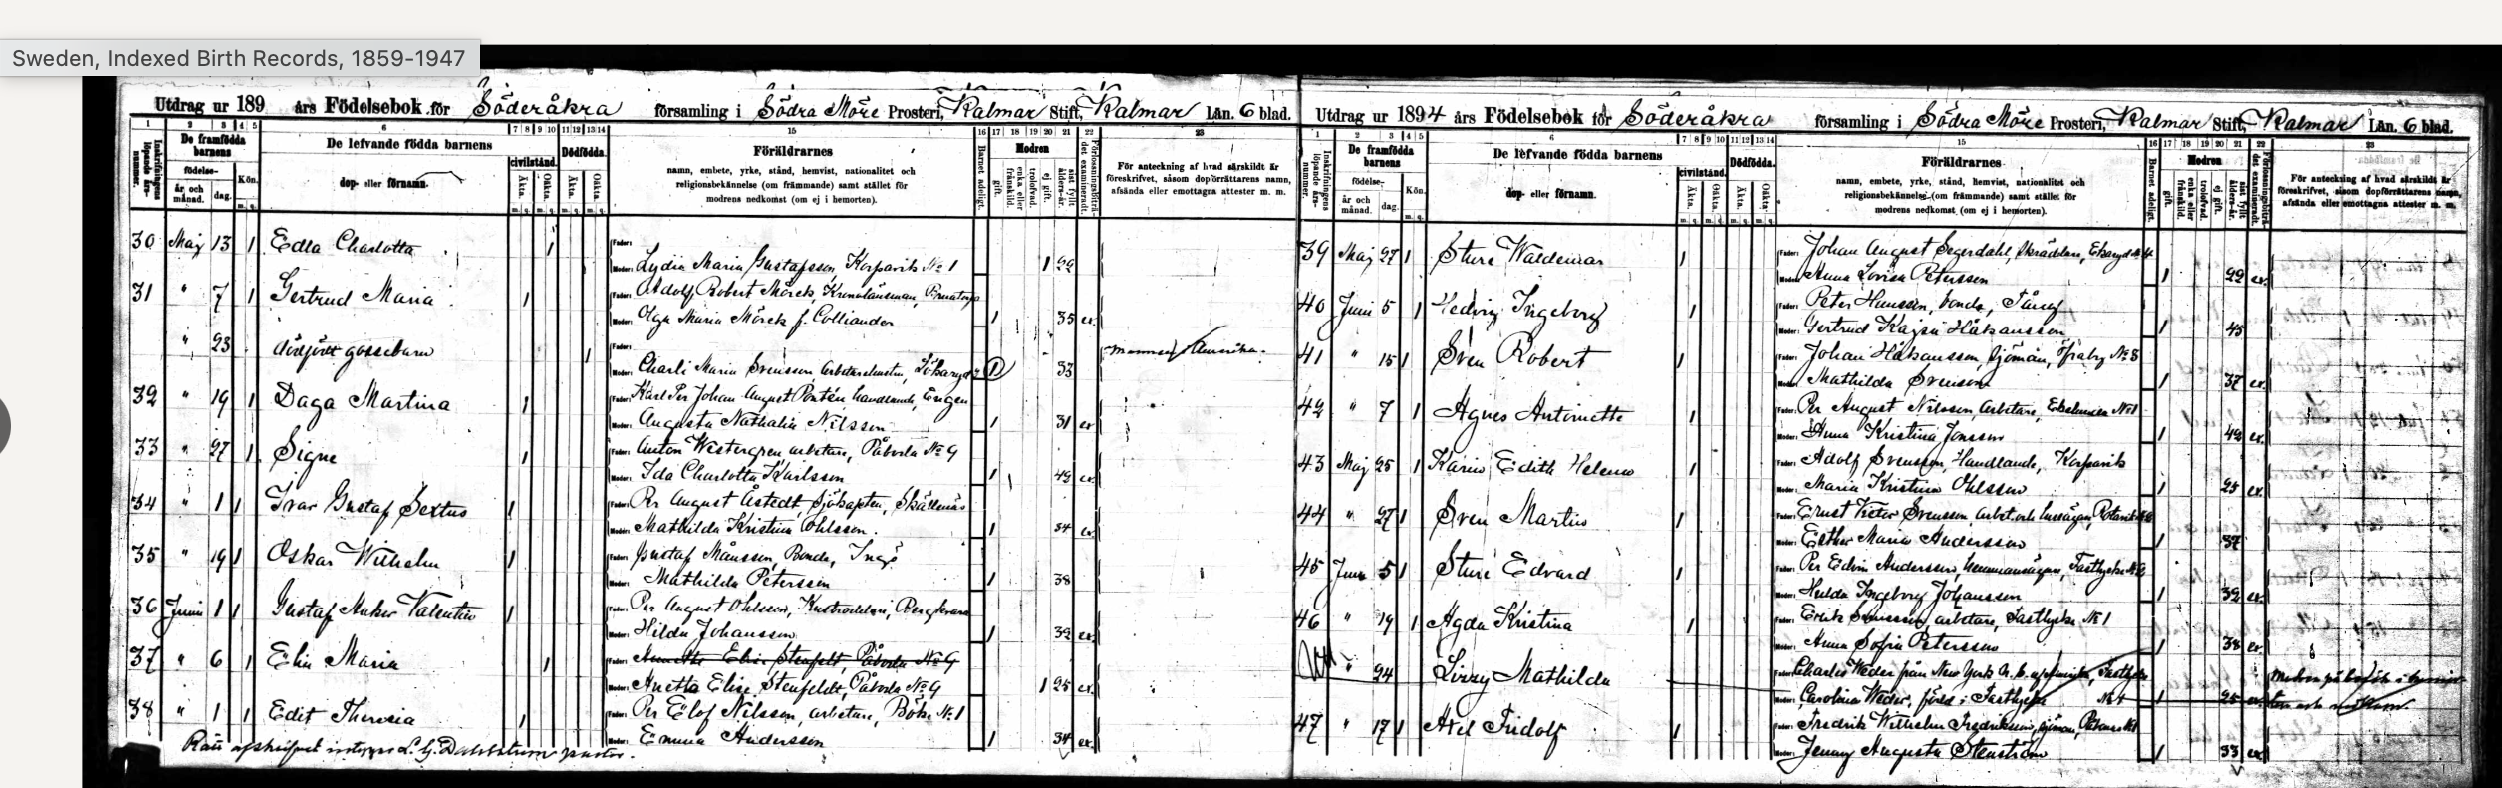 Sweden, Indexed Birth Records, 1859-1947
Utdrag ur 189 års Födelsebok för Söderåkra församling i Södra Möre Prosteri, Kalmar Stift, Kalmar län. 6 blad.
1 2 3 4 5 6 7 8 9 10 11 12 13 14 15 16 17 18 19 20 21 22 23
Inskrifningens löpande års-nummer.
De framfödda barnens
födelse-
år och månad.
dag.
Kön.
m. q.
De lefvande födda barnens
dop- eller förnamn.
civilstånd.
Äkta.
Oäkta.
Dödfödda.
Äkta.
Oäkta.
Föräldrarnes
namn, embete, yrke, stånd, hemvist, nationalitet och
religionsbekännelse (om främmande) samt stället för
modrens nedkomst (om ej i hemorten).
Barnet adeligt.
Modren
gift.
enka eller frånskild.
trolofvad.
ej gift.
sist fyllt ålders-år.
Förlossningsbiträ-det examineradt.
För anteckning af hvad särskildt är
föreskrifvet, såsom dopförrättarens namn,
afsända eller emottagna attester m. m.
30 Maj 13 1 Edla Charlotta 1
Fader:
Moder: Lydia Maria Gustafsson, Korpavik No 1 1 22
31 " 7 1 Gertrud Maria 1
Fader: Adolf Robert Mörck, Kronolänsman,
Moder: Olga Maria Mörck f. Colliander 1 35 ex.
" 23 dödfödt gossebarn 1
Fader:
Moder: Maria Svensson, 1 33 Amerika.
32 " 19 1 Daga Martina 1
Fader: Karl Per Johan August Pontén handlande,
Moder: Augusta Nathalia Nilsson 1 31 ex
33 " 27 1 Signe 1
Fader: Anton Westergren arbetare, Påboda No 9
Moder: Ida Charlotta Karlsson 1 42 ex.
34 " 1 1 Ivar Gustaf Sextus 1
Fader: Per August Åstedt, Sjökapten, Skällenäs
Moder: Mathilda Kristina Ohlsson 1 34 ex.
35 " 19 1 Oskar Wilhelm 1
Fader: Gustaf Månsson, Bonde,
Moder: Mathilda Petersson 1 38
36 Juni 1 1 Gustaf Anker Valentin 1
Fader: Per August Ohlsson, Bergkvara
Moder: Hilda Johansson 1 32 ex.
37 " 6 1 Elin Maria 1
Fader: Annetta Elise Stenfelt, Påboda No 9
Moder: Anetta Elise Stenfeldt, Påboda No 9 1 25 ex.
38 " 1 1 Edit Theresia 1
Fader: Per Elof Nilsson, arbetare, No 1
Moder: Emma Andersson 1 34 ex.
Rätt afskrifvet intygar pastor.
Utdrag ur 1894 års Födelsebok för Söderåkra församling i Södra Möre Prosteri, Kalmar Stift, Kalmar Län. 6 blad.
1 2 3 4 5 6 7 8 9 10 11 12 13 14 15 16 17 18 19 20 21 22 23
Inskrifningens löpande års-nummer.
De framfödda barnens
födelse-
år och månad.
dag.
Kön.
m. q.
De lefvande födda barnens
dop- eller förnamn.
civilstånd.
Äkta.
Oäkta.
Dödfödda.
Äkta.
Oäkta.
Föräldrarnes
namn, embete, yrke, stånd, hemvist, nationalitet och
religionsbekännelse (om främmande) samt stället för
modrens nedkomst (om ej i hemorten).
Barnet adeligt.
Modren
gift.
enka eller frånskild.
trolofvad.
ej gift.
sist fyllt ålders-år.
Förlossningsbiträ-det examineradt.
För anteckning af hvad särskildt är
föreskrifvet, såsom dopförrättarens namn,
afsända eller emottagna attester m. m.
39 Maj 27 1 Sture Waldemar 1
Fader: Johan August Segerdahl, Skräddare,
Moder: Anna Lovisa Petersson 1 22 ex.
40 Juni 5 1 Hedvig Ingeborg 1
Fader: Peter Hansson, bonde,
Moder: Gertrud Kajsa Håkansson 1 45
41 " 15 1 Sven Robert 1
Fader: Johan Håkansson, Sjöman, No 8
Moder: Mathilda Svensson 1 37 ex.
42 " 7 1 Agnes Antoinette 1
Fader: Per August Nilsson arbetare, No 1
Moder: Anna Kristina Jonsson 1 42 ex.
43 Maj 25 1 Karin Edith Helena 1
Fader: Adolf Svensson, Handlande, Korpavik
Moder: Maria Kristina Ohlsson 1 25 ex.
44 " 27 1 Sven Martin 1
Fader: Ernst Victor Svensson,
Moder: Esther Maria Andersson 1 37
45 Juni 5 1 Sture Edvard 1
Fader: Per Edvin Andersson, hemmansägare,
Moder: Hulda Ingeborg Johansson 1 32 ex.
46 " 19 1 Agda Kristina 1
Fader: Svensson, arbetare, No 1
Moder: Anna Sofia Petersson 1 38 ex.
" 24 Lizzy Mathilda
Fader: Charles Weder från New York
Moder: Carolina Weder, 1 25
47 " 17 1 Axel Fridolf 1
Fader: Fredrik Wilhelm Fredriksson, sjöman,
Moder: Jenny Augusta Stenström 1 33 ex